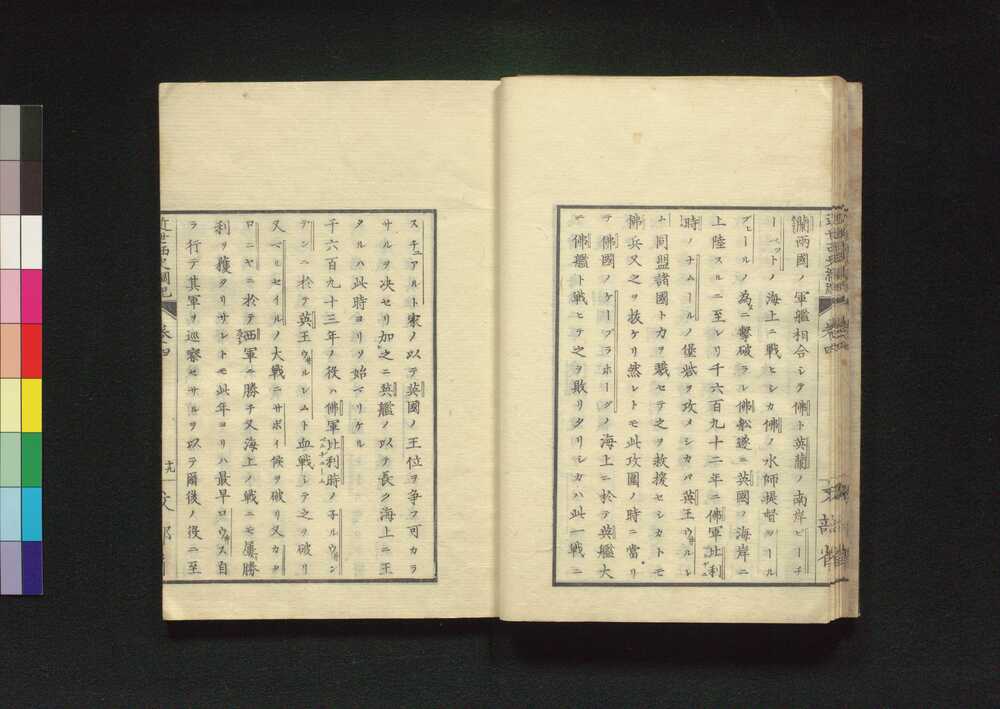 蘭兩國ノ軍艦相合シテ佛ト英蘭ノ南岸ビーチ
ーベットノ海上ニ戰ヒシカ佛ノ水師提督ツール
ビールノ為ニ擊破ラレ佛舩遂ニ英國ノ海岸ニ
上陸スルニ至レリ千六百九十二年ニ佛軍比利
時ノナムールノ堡砦ヲ攻メシカバ英王ウㇽレ
ト同盟諸國ト力ヲ戮セテ之ヲ救援セシカトモ
佛兵又之ヲ拔ケリ然レトモ此攻圍ノ時ニ當リ
テ佛國ノケープラホーグノ海上ニ於テ英艦大
ニ佛艦ト戰ヒテ之ヲ敗リタリシカハ此一戰ニ
スチュアルト家ノ以テ英國ノ王位ヲ爭フ可カラ
サルヲ决セリ加之ニ英艦ノ以テ長ク海上ニ王
タルハ此時ヨリソ始マリケル
千六百九十三年ノ役ハ佛軍比利時ノ子ルウヰン
デンニ於テ英王ウㇽレムト血戰シテ之ヲ破リ
又マルセイルノ大戰ニサボイ候ヲ破リ又カタ
ロニヤニ於テ西軍ニ勝チ又海上ノ戰ニモ屢勝
利ヲ獲タリサレトモ此年ヨリハ最早ロウス自
ラ行テ其軍ヲ巡察セサルヲ以テ爾後ノ役ニ至
近世西史綱紀
卷四
十九
文部省